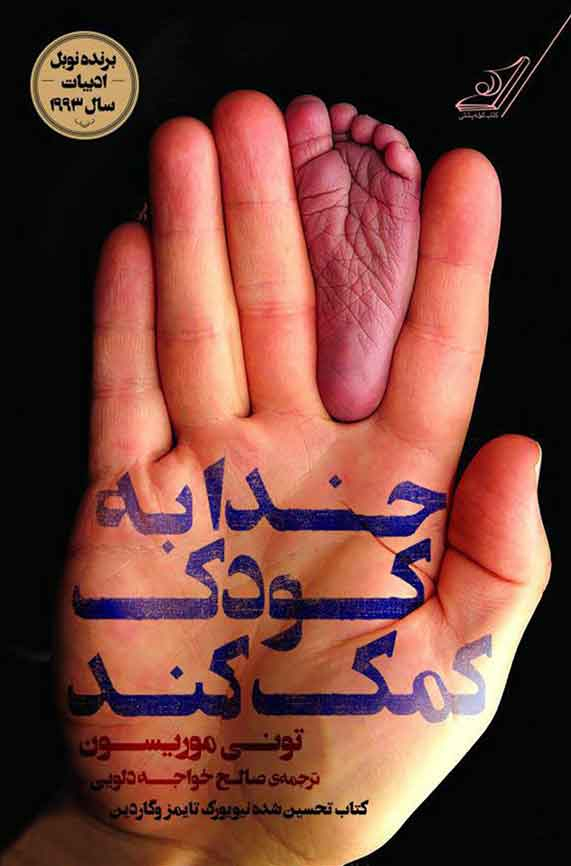 برنده نوبل
ادبیات
سال ۱۹۹۳
کتاب کوله پشتی
خدا به
کودک
کمک کند
تونی موریسون
ترجمه‌ی صالح خواجه دلویی
کتاب تحسین شده نیویورک تایمز و گاردین